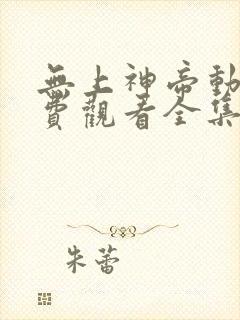 無上神帝動
費觀看全集
朱蕾